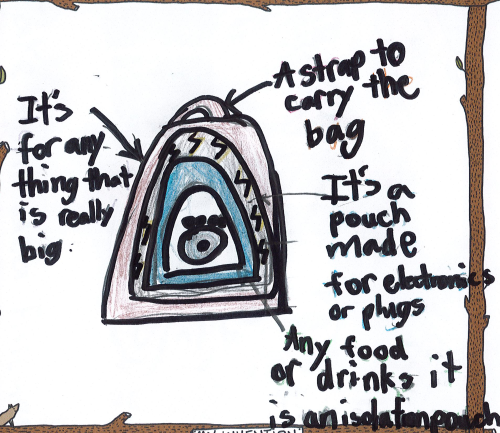 It's
for any
thing that
is really
big.
A strap to
carry the
bag
It's a
pouch
made
for electronics
or plugs
Any food
or drinks it
is an isolation pouch